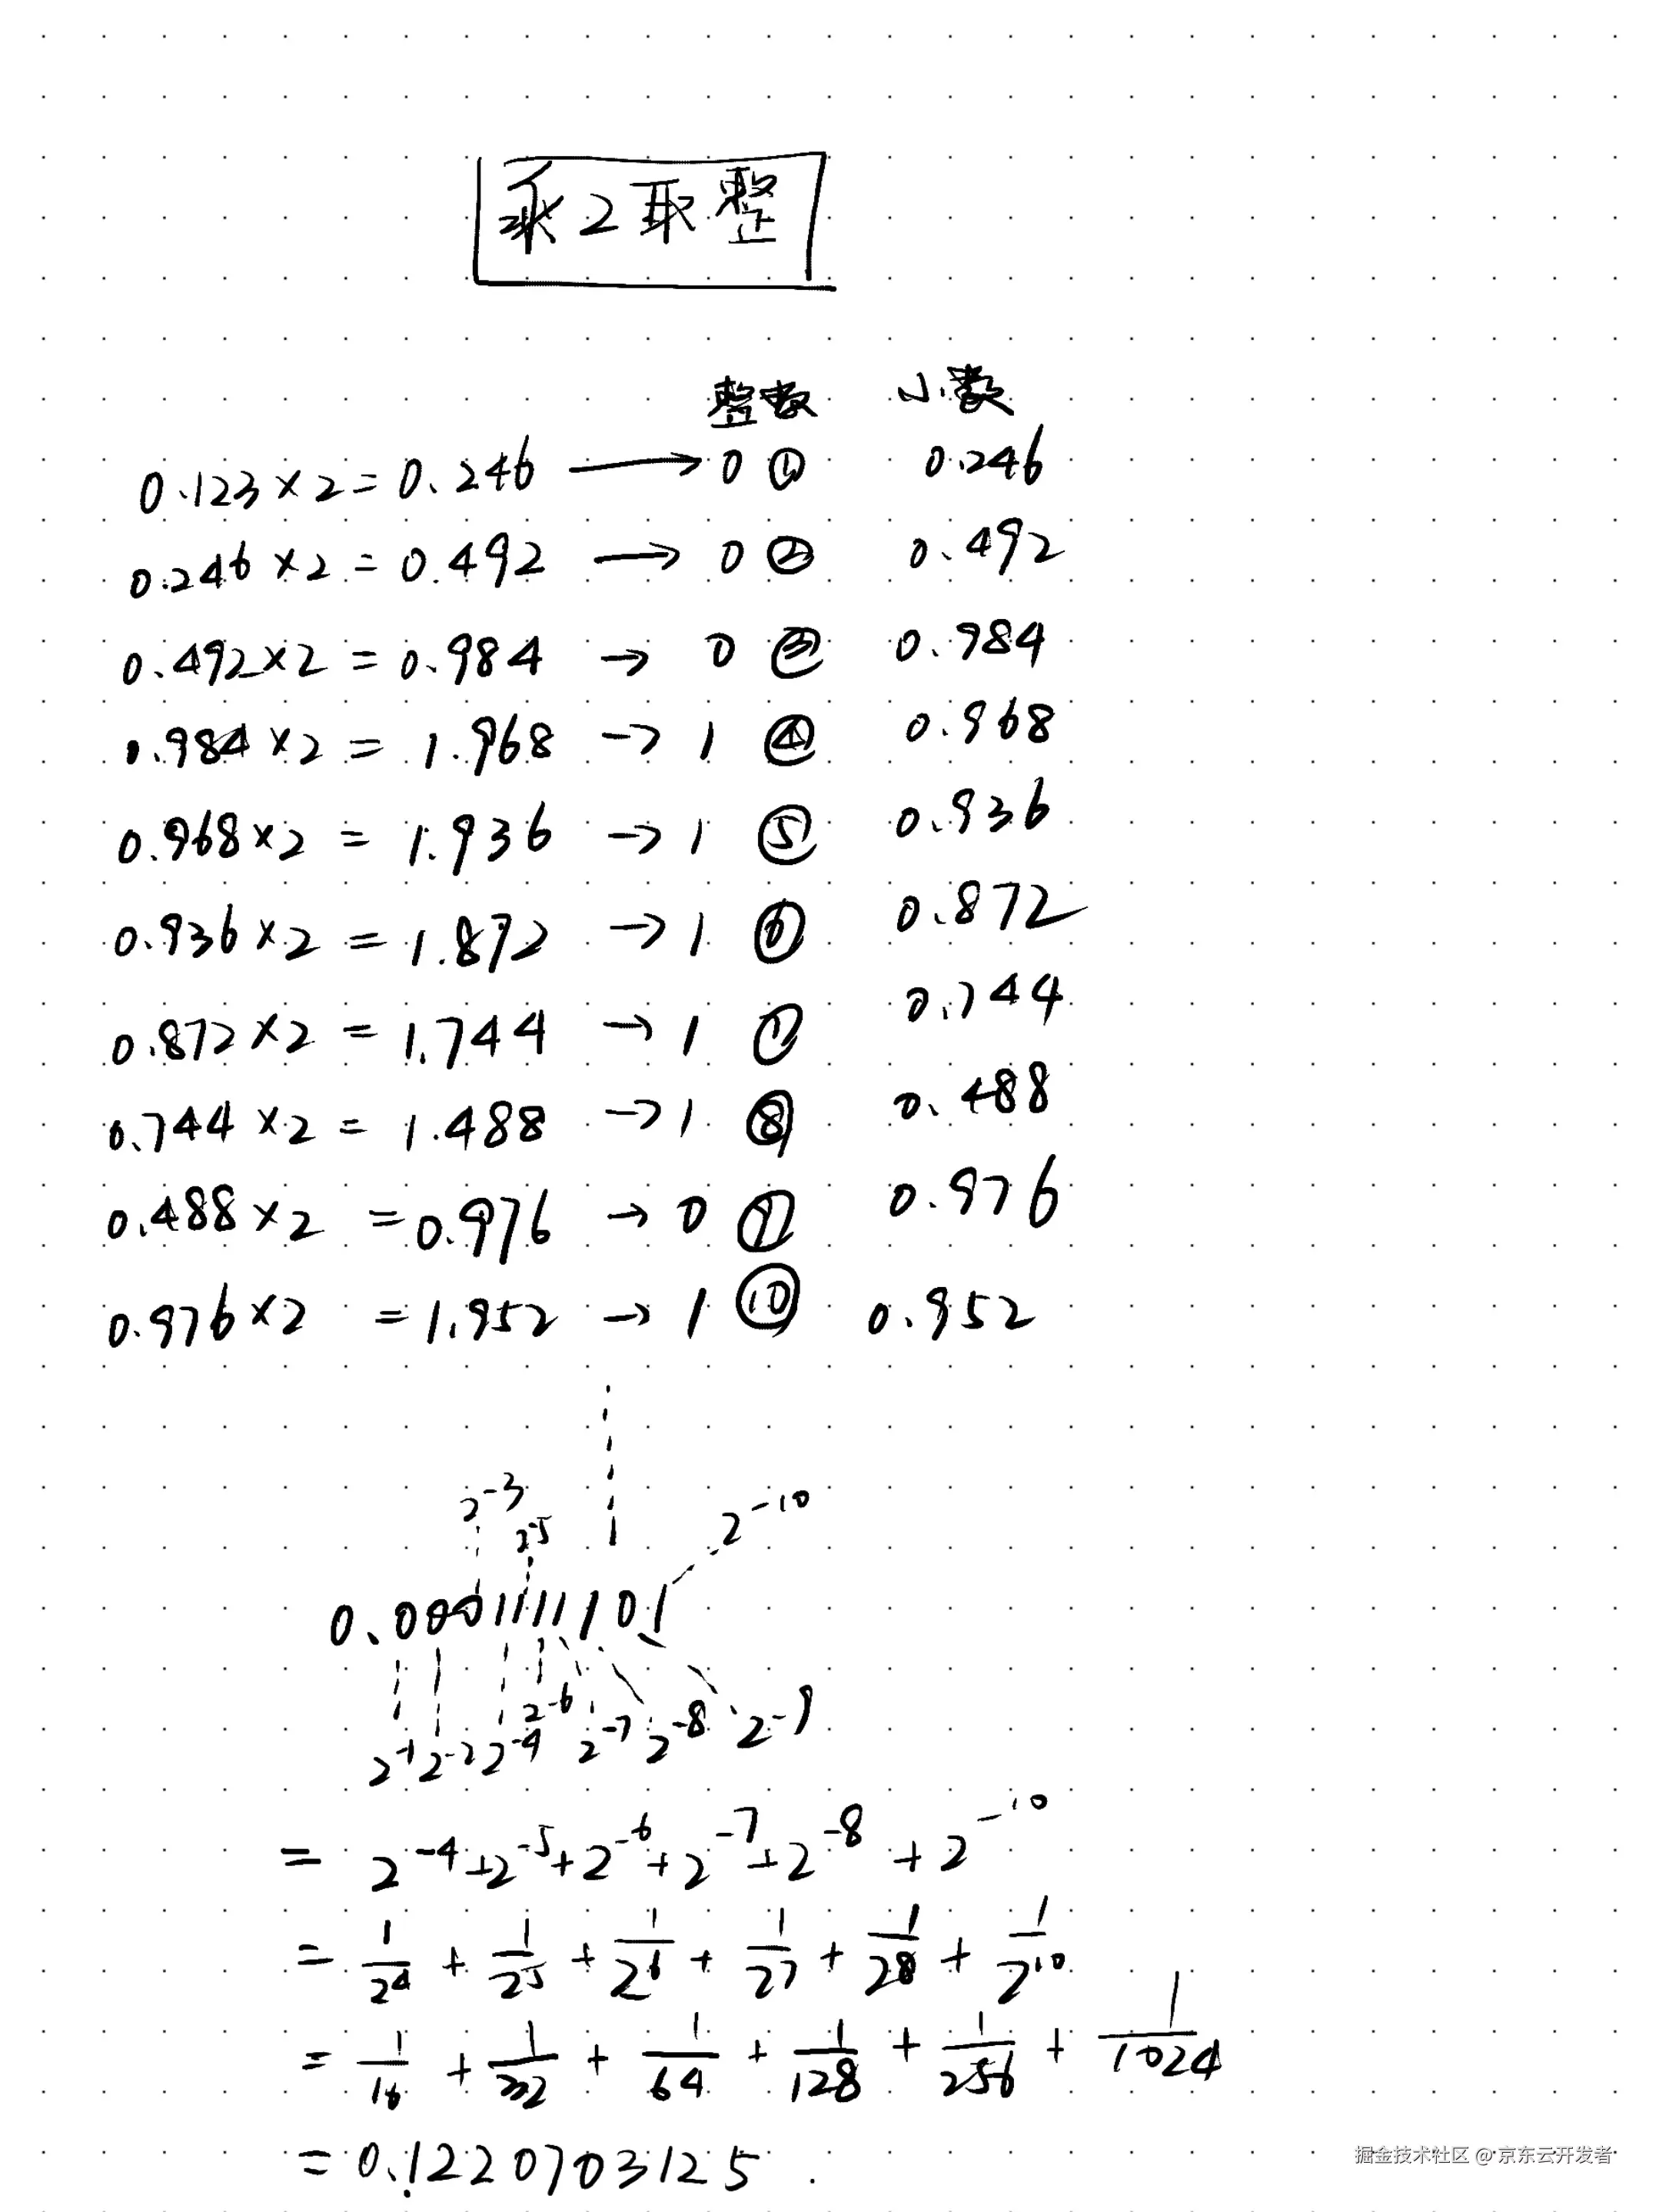 乘2取整
整数 小数
0.123×2=0.246 → 0 ① 0.246
0.246×2=0.492 → 0 ② 0.492
0.492×2=0.984 → 0 ③ 0.984
0.984×2=1.968 → 1 ④ 0.968
0.968×2=1.936 → 1 ⑤ 0.936
0.936×2=1.872 → 1 ⑥ 0.872
0.872×2=1.744 → 1 ⑦ 0.744
0.744×2=1.488 → 1 ⑧ 0.488
0.488×2=0.976 → 0 ⑨ 0.976
0.976×2=1.952 → 1 ⑩ 0.952
2⁻³ 2⁻⁵ 2⁻¹⁰
0.0001111101
2⁻¹ 2⁻² 2⁻⁴ 2⁻⁶ 2⁻⁷ 2⁻⁸ 2⁻⁹
= 2⁻⁴+2⁻⁵+2⁻⁶+2⁻⁷+2⁻⁸+2⁻¹⁰
= 1/2⁴ + 1/2⁵ + 1/2⁶ + 1/2⁷ + 1/2⁸ + 1/2¹⁰
= 1/16 + 1/32 + 1/64 + 1/128 + 1/256 + 1/1024
= 0.1220703125
掘金技术社区 @ 京东云开发者